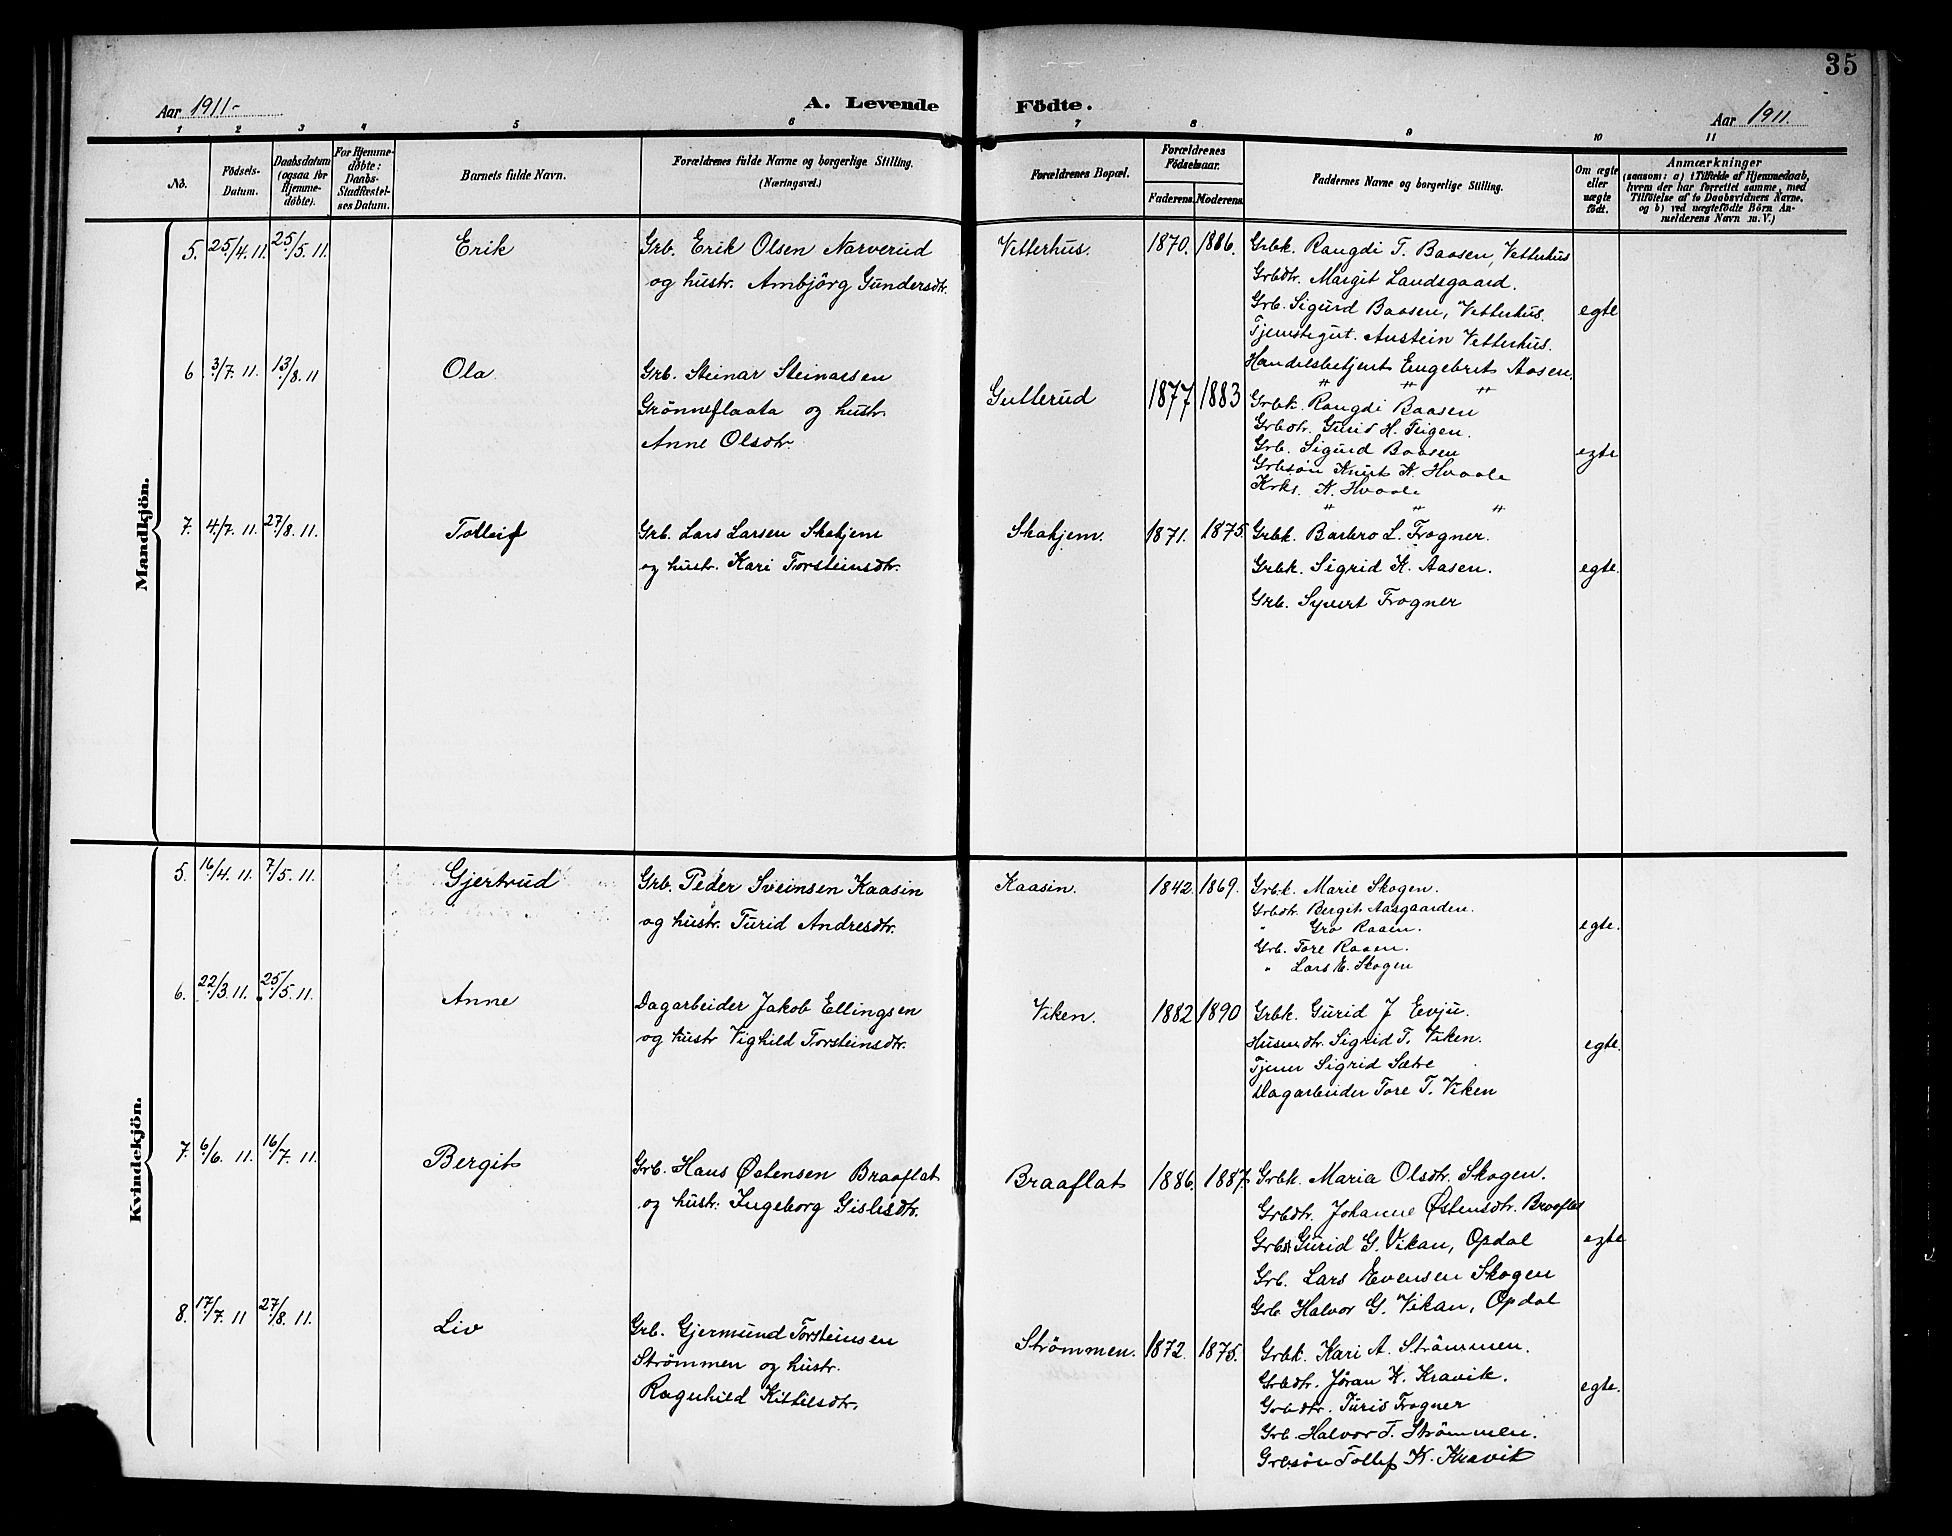 35
Aar 1911.
A. Levende Födte.
Aar 1911.
1 2 3 4 5 6 7 8 9 10 11
No.
Födsels-Datum.
Daabsdatum (ogsaa for Hjemme-döbte).
For Hjemme-döbte: Daabs-Stadfæstel-ses Datum.
Barnets fulde Navn.
Forældrenes fulde Navne og borgerlige Stilling.
(Næringsvei.)
Forældrenes Bopæl.
Forældrenes Födselsaar.
Faderens. Moderens.
Faddernes Navne og borgerlige Stilling.
Om ægte eller uægte födt.
Anmærkninger
(saasom: a) i Tilfælde af Hjemmedaab,
hvem der har forrettet samme, med
Tilföielse af to Daabsvidners Navne.
og b) ved uægtefödte Börn An-
melderens Navn m. V.)
Mandkjön.
5. 25/4. 11. 25/5. 11. Erik
Grb. Erik Olsen Narverud
og hustr. Ambjörg Gundersdtr.
Vetterhus. 1870. 1886.
Grbk. Rangdi T. Baasen, Vetterhus
Grbdtr. Margit Landsgaard.
Grb. Sigurd Baasen, Vetterhus.
Tjenstegut. Austein Vetterhus.
Handelsbetjent Engebret Aasen.
" " "
egte
6 3/7. 11. 13/8. 11 Ola.
Grb. Steinar Steinarsen
Grönneflaata og hustr.
Anne Olsdtr.
Gulterud 1877 1883
Grbk. Rangdi Baasen
Grbdtr. Gurid H. Teigen.
Grb. Sigurd Baasen
Grbsön Knut N. Hvaale
Krks. N. Hvaale
" " "
egte
7. 4/7. 11. 27/8. 11. Tolleif
Grb. Lars Larsen Skahjem
og hustr. Kari Torsteinsdtr.
Skahjem. 1871. 1875.
Grbk. Barbro L. Frogner.
Grbk. Sigrid K. Aasen.
Grb. Syvert Frogner
egte.
Kvindekjön.
5. 16/4. 11. 7/5. 11. Gjertrud
Grb. Peder Sveinsen Kaasin
og hustr. Turid Andresdtr.
Kaasin. 1842. 1869.
Grbk. Marie Skogen.
Grbdtr. Bergit Aasgaarden.
" Gro Raaen.
Grb. Tore Raaen.
" Lars E. Skogen
egte.
6. 22/3. 11. 25/5. 11. Anne
Dagarbeider Jakob Ellingsen
og hustr Vighild Torsteinsdtr.
Viken. 1882 1890
Grbk. Gurid J Evju.
Husmdtr. Sigrid T. Viken.
Tjener Sigrid Sætre
Dagarbeider Tore T. Viken
egte.
7. 6/6. 11. 16/7. 11. Bergit
Grb. Hans Østensen Braaflat
og hustr. Ingeborg Gislesdtr.
Braaflat 1886. 1887
Grbk. Maria Olsdtr. Skogen.
Grbdtr. Johanne Østensdtr. Braaflat
Grbdt Gurid G. Vikan, Opdal
Grb. Lars Evensen Skogen
Grb. Halvor G. Vikan, Opdal
egte
8. 17/7. 11 27/8. 11. Liv
Grb. Gjermund Torsteinsen
Strömmen og hustr.
Ragnhild Kittilsdtr.
Strömmen. 1872. 1875.
Grbk. Kari A. Strömmen.
Grbdtr. Jöran K. Kravik.
Grbdtr. Turid Frogner
Grb. Halvor T. Strömmen.
Grbsön Tollef K. Kravik
egte.